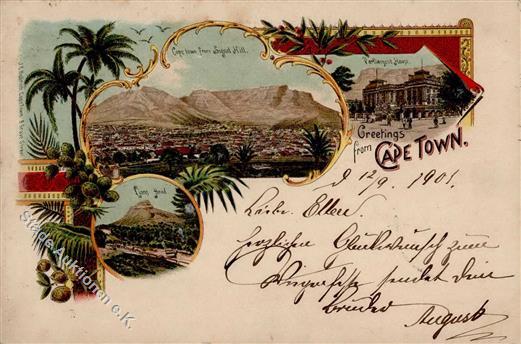 Cape town from Signal Hill.
Parliament House.
Greetings
from
CAPE TOWN.
Lions Head
d 12/9. 1901.
Liebe Ellen
herzlichen Glückwunsch zum
sendet dein
Bruder
August